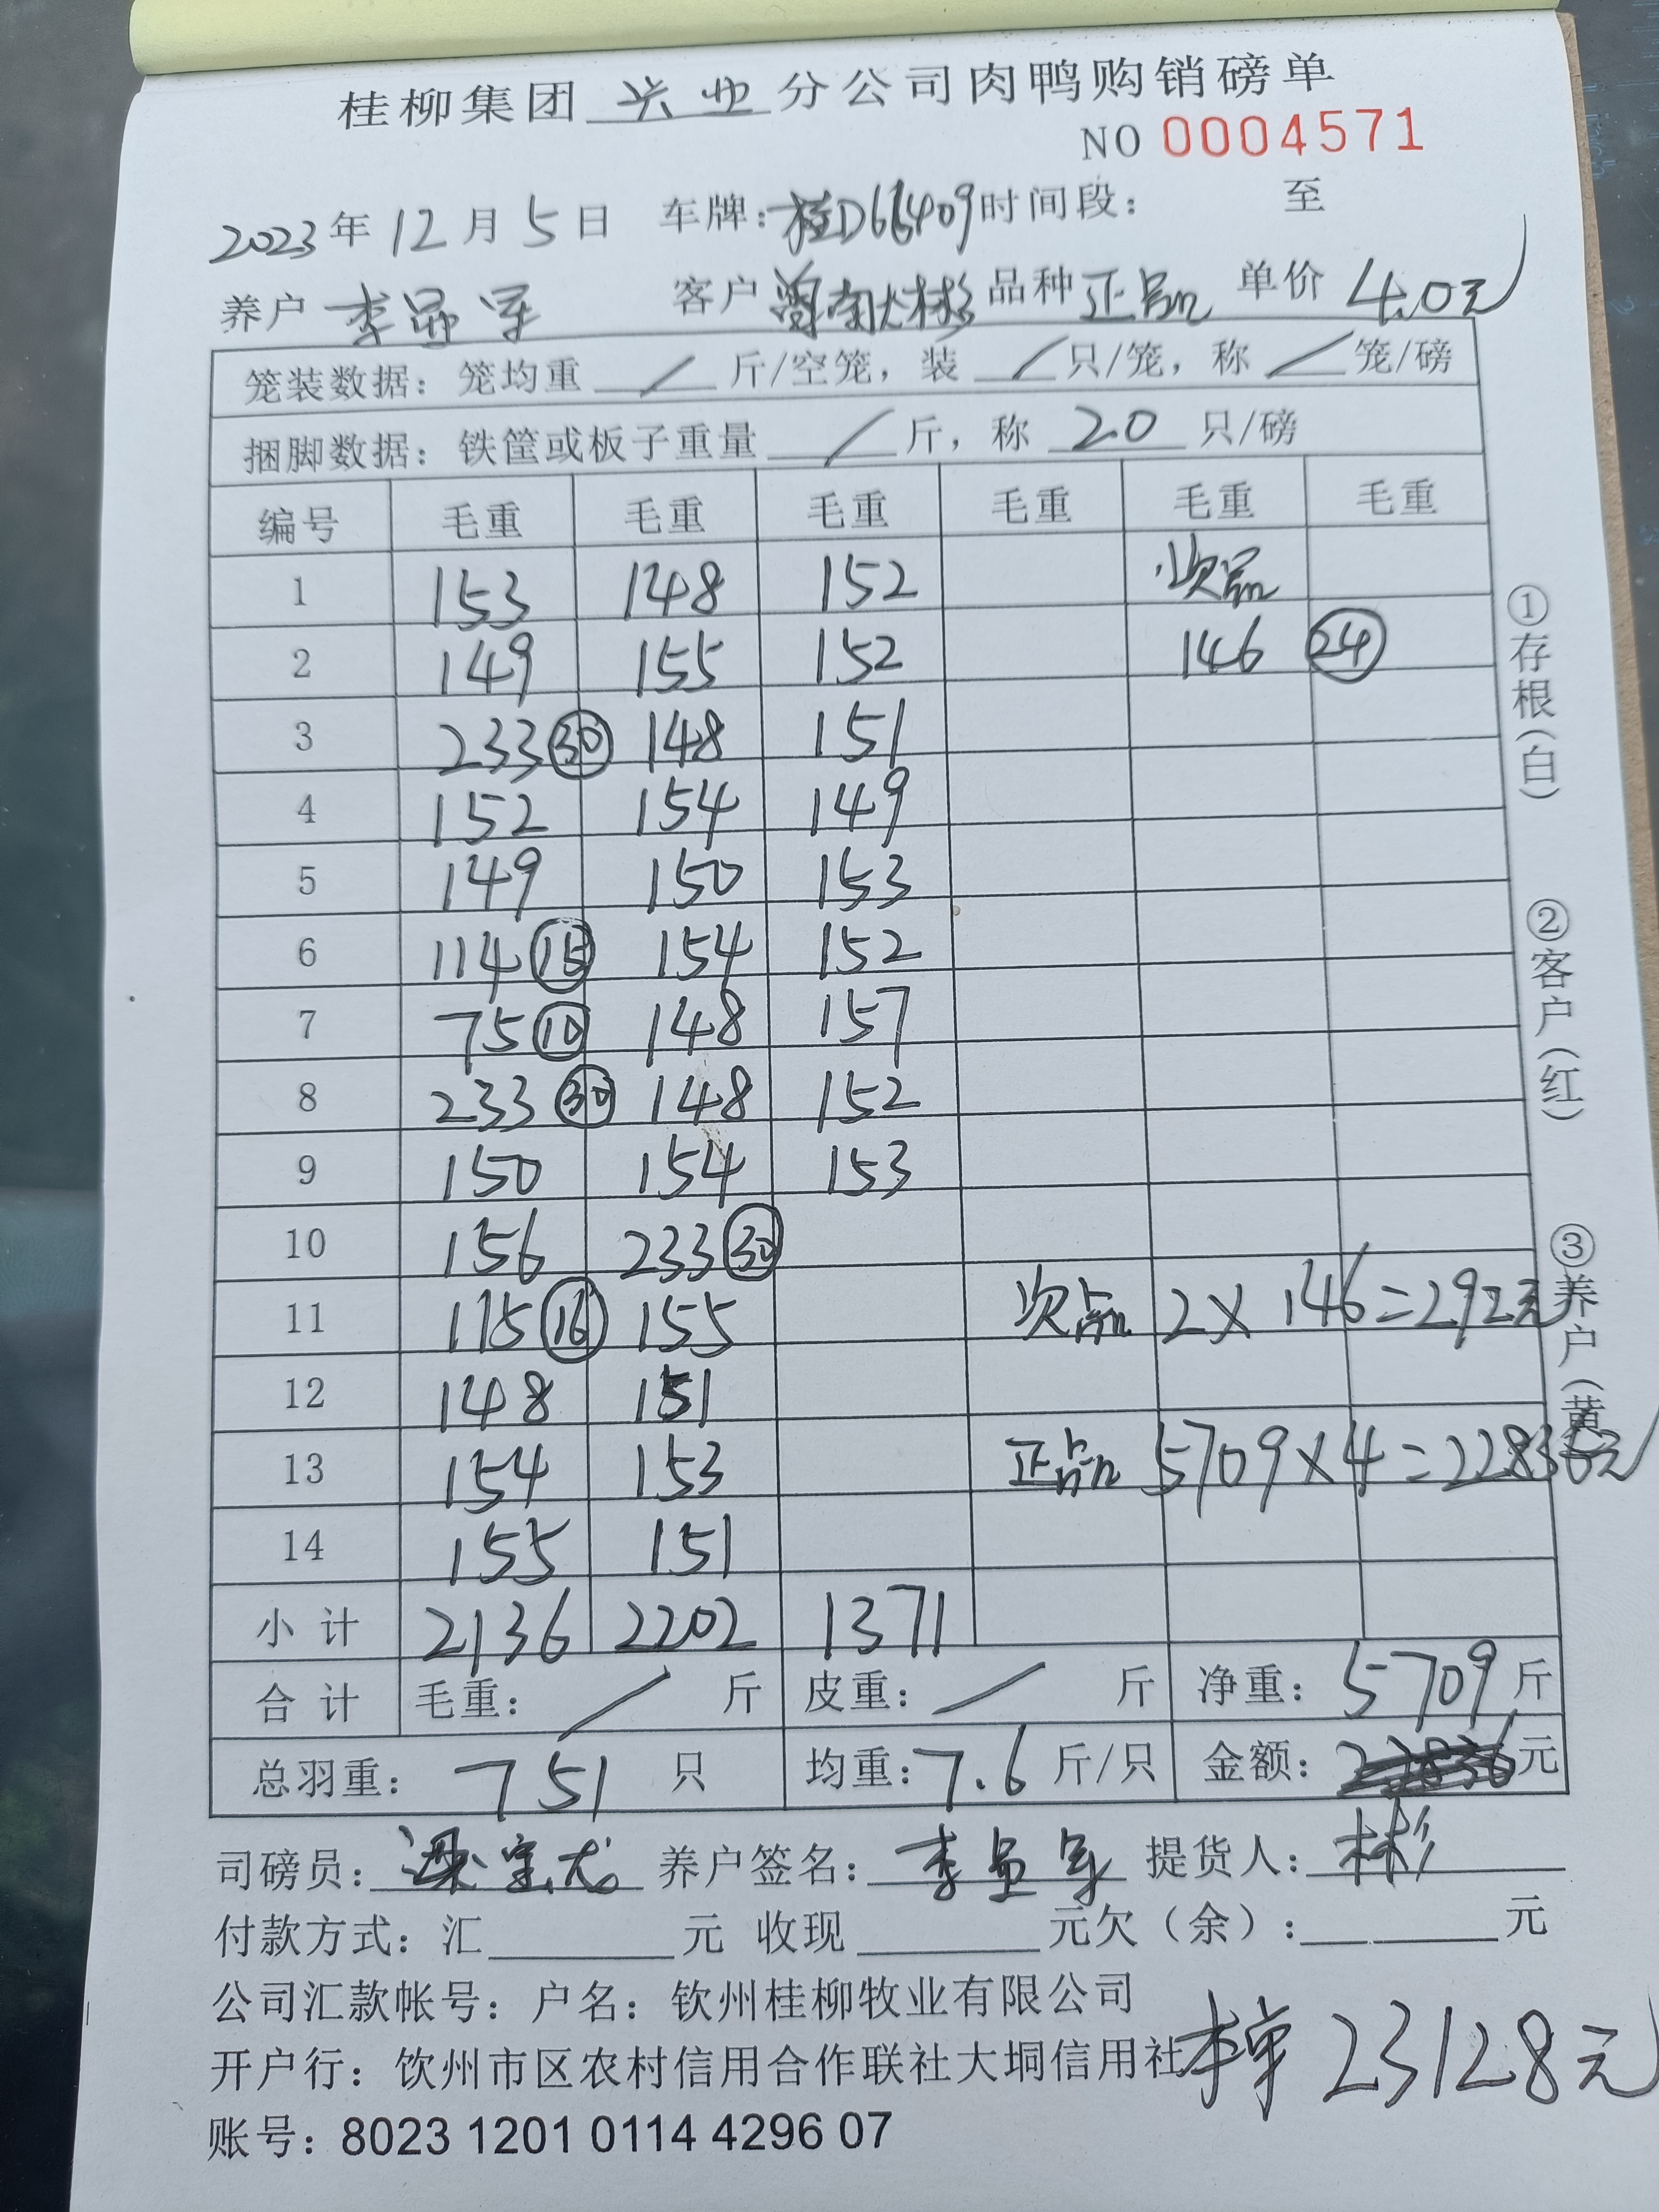 桂柳集团 兴业 分公司肉鸭购销磅单
NO 0004571
2023年12月5日 车牌:桂D66409 时间段: 至
养户 李显军 客户 大彬 品种 正品 单价 4.0元
笼装数据: 笼均重 / 斤/空笼, 装 / 只/笼, 称 / 笼/磅
捆脚数据: 铁筐或板子重量 / 斤, 称 20 只/磅
编号 毛重 毛重 毛重 毛重 毛重 毛重
1 153 148 152 次品
2 149 155 152 146 24
3 233 30 148 151
4 152 154 149
5 149 150 153
6 114 15 154 152
7 75 10 148 157
8 233 30 148 152
9 150 154 153
10 156 233 30
11 115 16 155 次品 2×146=292元
12 148 151
13 154 153 正品 5709×4=22836元
14 155 151
小计 2136 2202 1371
合计 毛重: / 斤 皮重: / 斤 净重: 5709 斤
总羽重: 751 只 均重: 7.6 斤/只 金额: 22836 元
司磅员: 养户签名: 李显军 提货人: 林彬
付款方式: 汇 元 收现 元欠(余): 元
公司汇款帐号: 户名: 钦州桂柳牧业有限公司
开户行: 钦州市区农村信用合作联社大垌信用社 本单 23128元
账号: 8023 1201 0114 4296 07
①存根(白) ②客户(红) ③养户(黄